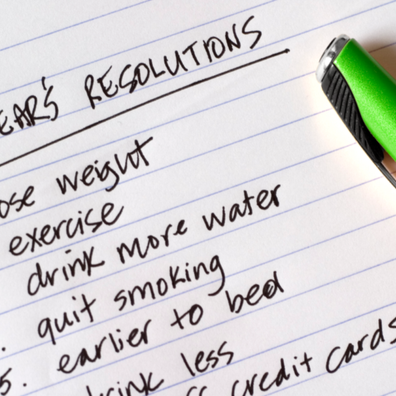 EAR'S RESOLUTIONS
ose weight
exercise
drink more water
. quit smoking
5. earlier to bed
drink less
credit cards